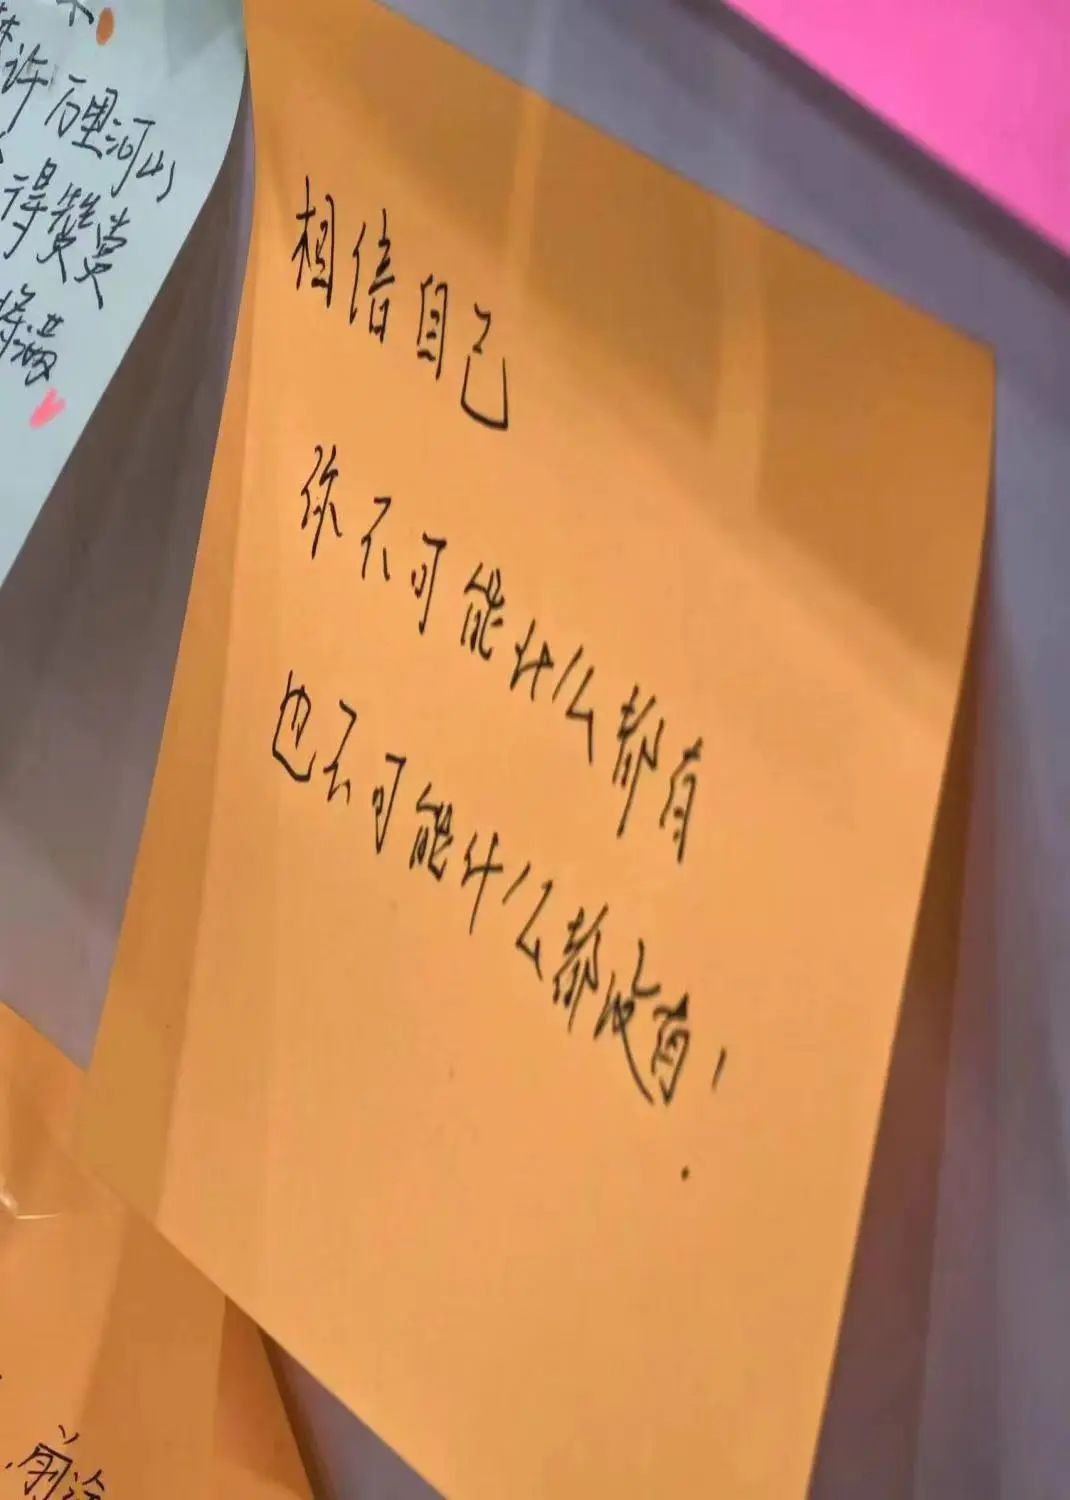 许万里河山
得赞赏
相信自己
你不可能什么都有
也不可能什么都没有！
前途